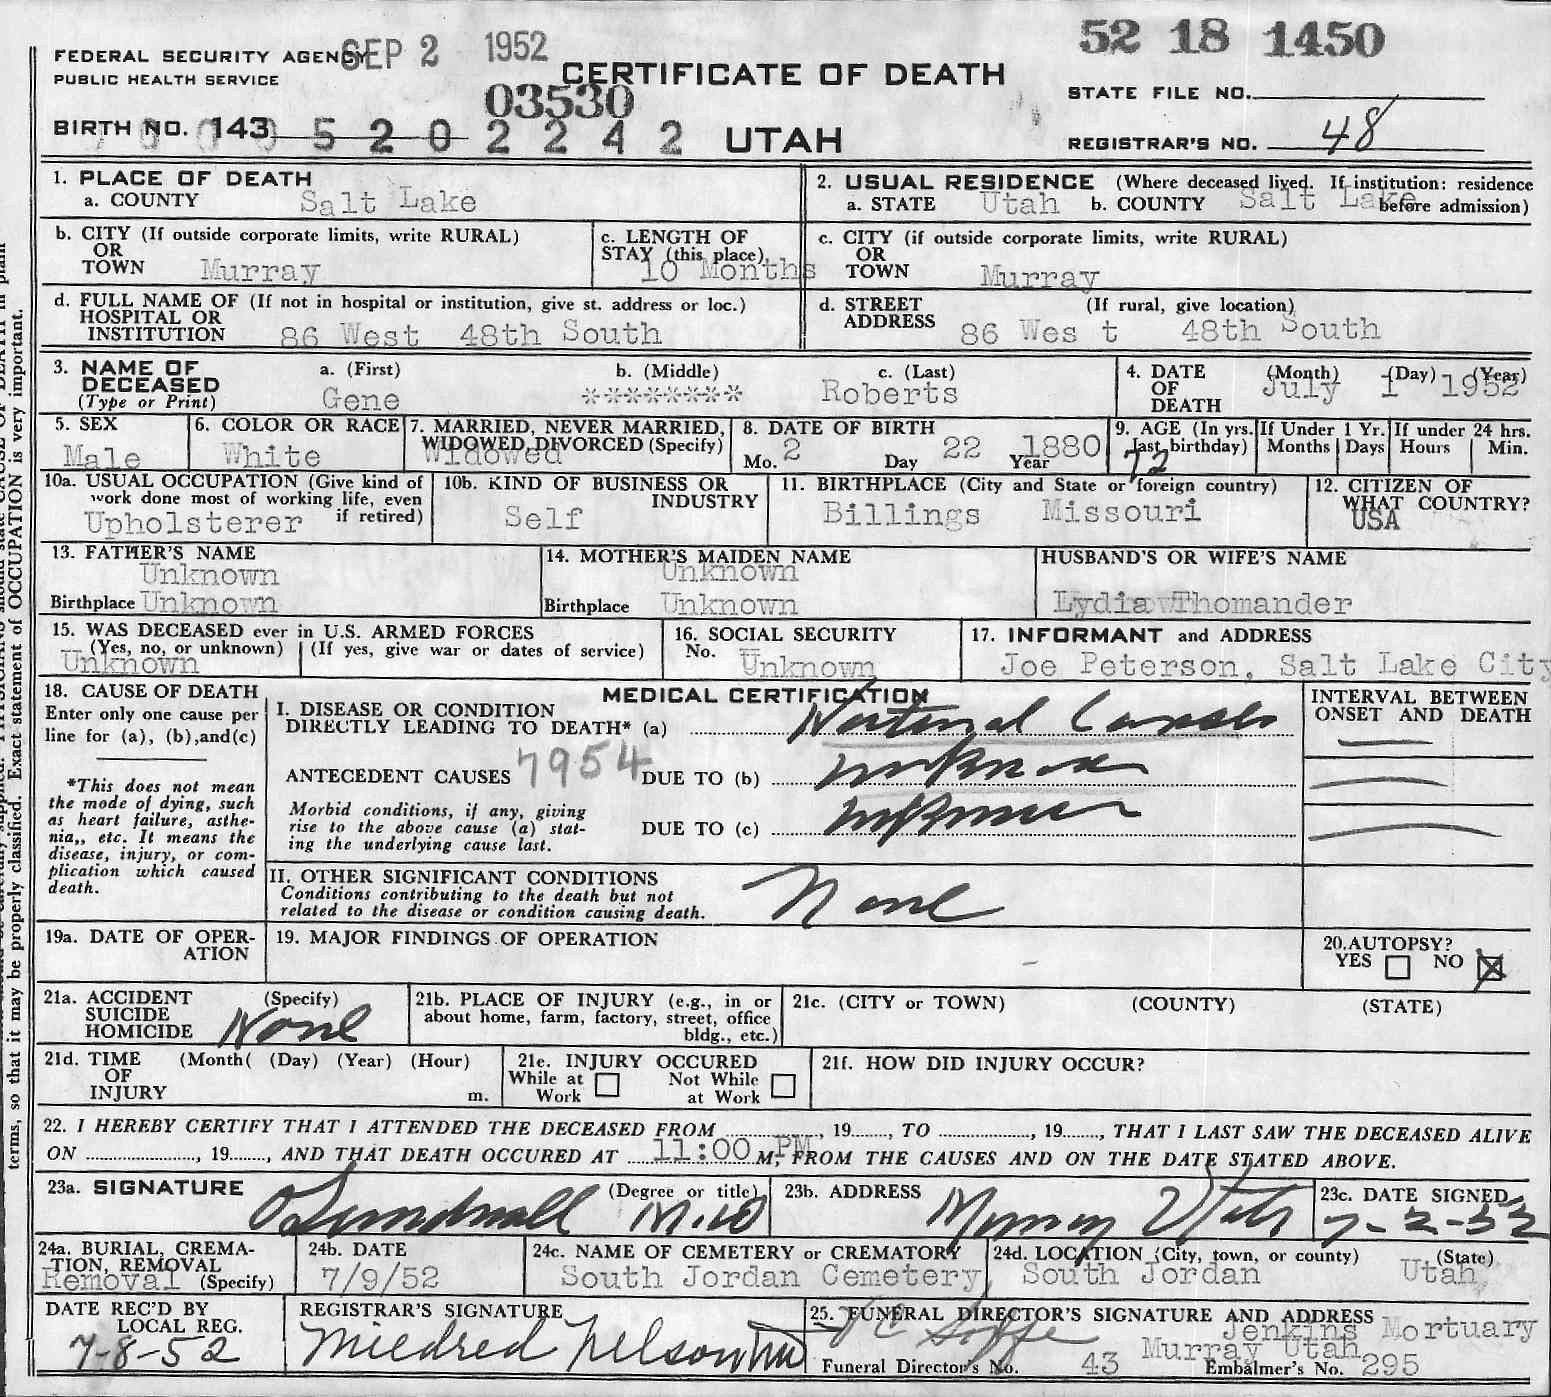 FEDERAL SECURITY AGENCY SEP 2 1952 52 18 1450
PUBLIC HEALTH SERVICE CERTIFICATE OF DEATH
03530 STATE FILE NO.
BIRTH NO. 143 5 2 0 2 2 4 2 UTAH REGISTRAR'S NO. 48
1. PLACE OF DEATH
a. COUNTY Salt Lake
2. USUAL RESIDENCE (Where deceased lived. If institution: residence before admission)
a. STATE Utah b. COUNTY Salt Lake
b. CITY (If outside corporate limits, write RURAL)
OR
TOWN Murray
c. LENGTH OF
STAY (this place)
10 Months
c. CITY (if outside corporate limits, write RURAL)
OR
TOWN Murray
d. FULL NAME OF (If not in hospital or institution, give st. address or loc.)
HOSPITAL OR
INSTITUTION 86 West 48th South
d. STREET (If rural, give location)
ADDRESS 86 Wes t 48th South
3. NAME OF
DECEASED
(Type or Print)
a. (First) b. (Middle) c. (Last)
Gene ******** Roberts
4. DATE
OF
DEATH
(Month) (Day) (Year)
July 1 1952
5. SEX
Male
6. COLOR OR RACE
White
7. MARRIED, NEVER MARRIED,
WIDOWED, DIVORCED (Specify)
Widowed
8. DATE OF BIRTH
Mo. 2 Day 22 Year 1880
9. AGE (In yrs.
last birthday)
72
If Under 1 Yr.
Months Days
If under 24 hrs.
Hours Min.
10a. USUAL OCCUPATION (Give kind of
work done most of working life, even
if retired)
Upholsterer
10b. KIND OF BUSINESS OR
INDUSTRY
Self
11. BIRTHPLACE (City and State or foreign country)
Billings Missouri
12. CITIZEN OF
WHAT COUNTRY?
USA
13. FATHER'S NAME
Unknown
Birthplace Unknown
14. MOTHER'S MAIDEN NAME
Unknown
Birthplace Unknown
HUSBAND'S OR WIFE'S NAME
Lydia Thomander
15. WAS DECEASED ever in U.S. ARMED FORCES
(Yes, no, or unknown) (If yes, give war or dates of service)
Unknown
16. SOCIAL SECURITY
No. Unknown
17. INFORMANT and ADDRESS
Joe Peterson, Salt Lake City
18. CAUSE OF DEATH
Enter only one cause per
line for (a), (b), and(c)
*This does not mean
the mode of dying, such
as heart failure, asthe-
nia,, etc. It means the
disease, injury, or com-
plication which caused
death.
MEDICAL CERTIFICATION
I. DISEASE OR CONDITION
DIRECTLY LEADING TO DEATH* (a) Natural Causes
ANTECEDENT CAUSES 7954 DUE TO (b) unknown
Morbid conditions, if any, giving
rise to the above cause (a) stat-
ing the underlying cause last.
DUE TO (c) unknown
INTERVAL BETWEEN
ONSET AND DEATH
II. OTHER SIGNIFICANT CONDITIONS
Conditions contributing to the death but not
related to the disease or condition causing death.
None
19a. DATE OF OPER-
ATION
19. MAJOR FINDINGS OF OPERATION
20. AUTOPSY?
YES NO
21a. ACCIDENT (Specify)
SUICIDE
HOMICIDE None
21b. PLACE OF INJURY (e.g., in or
about home, farm, factory, street, office
bldg., etc.)
21c. (CITY or TOWN) (COUNTY) (STATE)
21d. TIME (Month( (Day) (Year) (Hour)
OF
INJURY m.
21e. INJURY OCCURED
While at Work Not While at Work
21f. HOW DID INJURY OCCUR?
22. I HEREBY CERTIFY THAT I ATTENDED THE DECEASED FROM , 19 , TO , 19 , THAT I LAST SAW THE DECEASED ALIVE
ON , 19 , AND THAT DEATH OCCURED AT 11:00 PM M, FROM THE CAUSES AND ON THE DATE STATED ABOVE.
23a. SIGNATURE (Degree or title)
Sundwall M.D
23b. ADDRESS
Murray Utah
23c. DATE SIGNED
7-2-52
24a. BURIAL, CREMA-
TION, REMOVAL
Removal (Specify)
24b. DATE
7/9/52
24c. NAME OF CEMETERY or CREMATORY
South Jordan Cemetery
24d. LOCATION (City, town, or county) (State)
South Jordan Utah
DATE REC'D BY
LOCAL REG.
7-8-52
REGISTRAR'S SIGNATURE
Mildred Nelson
25. FUNERAL DIRECTOR'S SIGNATURE AND ADDRESS
Jenkins Mortuary
Murray Utah
Funeral Director's No. 43 Embalmer's No. 295
terms, so that it may be properly classified. Exact statement of OCCUPATION is very important.